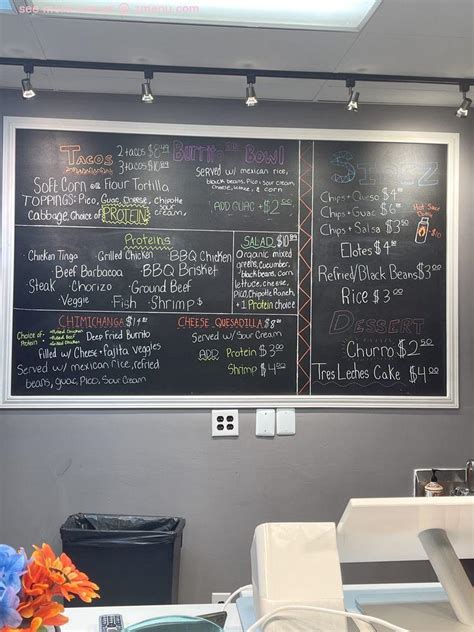 see more menus @ zmenu.com
TACOS 2 tacos $8
3 tacos $10
Soft Corn or Flour Tortilla
TOPPINGS: Pico, Guac, Cheese, Chipotle
sour cream,
Cabbage, Choice of PROTEIN
Bowl
Served w/ mexican rice,
black beans, Pico, Sour Cream
Cheese, lettuce, & corn
ADD GUAC +$2
Proteins
Chicken Tinga Grilled Chicken BBQ Chicken
Beef Barbacoa BBQ Brisket
Steak Chorizo Ground Beef
Veggie Fish Shrimp $
SALAD $10
Organic mixed
greens, Cucumber,
black beans, Corn
lettuce, cheese,
Pico, Chipotle Ranch
+ 1 Protein choice
CHIMICHANGA $14
Choice of Protein:
Deep Fried Burrito
Filled w/ Cheese + Fajita Veggies
Served w/ mexican rice, refried
beans, guac, Pico, Sour Cream
CHEESE QUESADILLA $8
Served w/ Sour Cream
ADD Protein $3
Shrimp $4
Chips + Queso $4
Chips + Guac $6
Chips + Salsa $3
Elotes $4
Refried/Black Beans $3
Rice $3
DESSERT
Churro $2
Tres Leches Cake $4